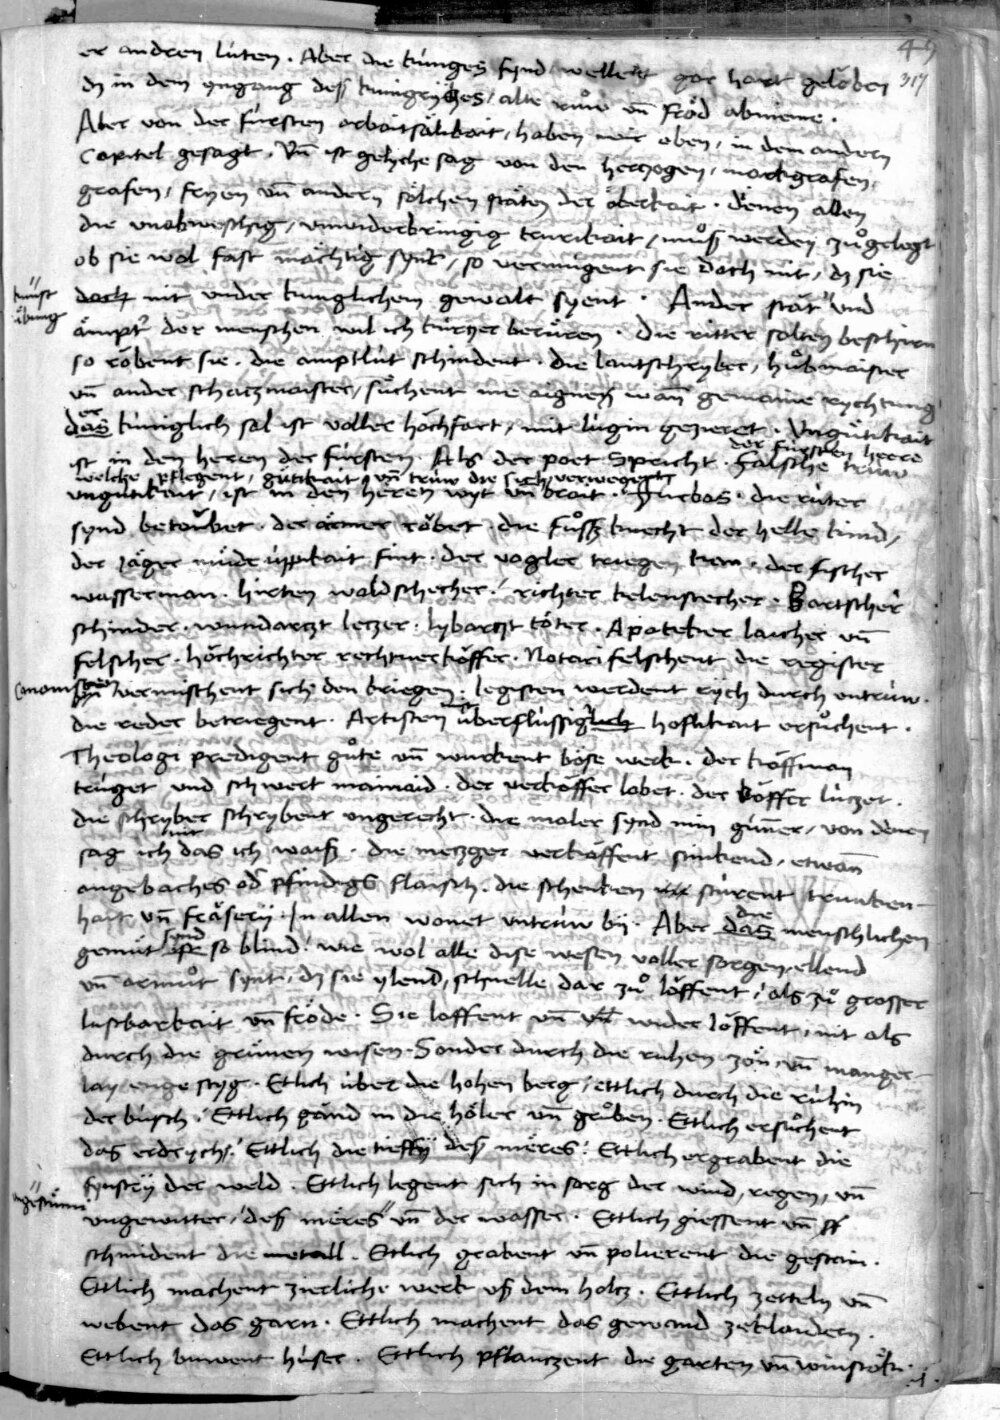 49
317
er andren lúten . Aber die kúniges synd wellent gar hart gelöben
dz in dem yngang deß kunigryches / alte růw vñ fröd abnieme .
Aber von der fúrsten arbaitsälikait / haben wir oben / in dem andern
Capitel gesagt . Vñ ist gelyche sag von den herczogen / markgrafen /
grafen / fryen vñ andern sölchen stäten der oberkait . denen allen
die vnabweschig / vnwiderbringig trurikait / můß werden zůgelegt
ob sie wol fast mächtig synt / so vermúgent sie doch nit / dz sie
doch nit vnder kunglichem gewalt syent . Ander stät vnd
kunst
übung
ämpter der menschen wil ich kúrczer berüren . die ritter solten beschirm
so röbent sie . die amptlút schindent . die lantschryber / hůbmaister
vñ ander schaczmaister / sůchent nie aignen wañ gemaine rychtung
das er kúniglich sal ist voller hochfart / mit lúgin gezieret . Vngůtikait
ist in den heren der fúrsten . Als der poet Spricht . Falsche trúw
der fúrsten heere
welche pflegent / gůtikait / vñ trúw die sich verwegent
vngůtikait / ist in den heren wyt vñ brait . die rúter
synd betoubet . der ärmer röbet die fůßknecht der helle kind /
der jäger müde úppkait fint . der vogler triegen kan . der fischer
wasserman . hirten waldschecher / richter kelenstecher . Bartscher
schinder . wundarczt leczer . lybarczt töter . Apoteker laicher vñ
felscher . höchrichter rechtuerköffer . Notari felschent die register
Canonisten vermischent sich den kriegen . legisten werdent rych durch vntrúw .
die reder betriegent . Artisten úberflússiglich hoflikait ersůchent .
Theologi predigent gůte vñ wúrkent böse werk . der köffman
trúget vnd schwert mainaid . der verköffer lobet . der köffer lúczet .
die schryber schrybent vngerecht . die maler synd min gúner / von denen
sag ich nit das ich waiß . die meczger verköffent stinkend / etwañ
angebaches oder pfindigs flaisch . die schenken stúrent trunken-
hait vñ fräsery . In allen wonet vntrúw bÿ . Aber das die menschlichen
gemút ist synd so blind / wie wol alle dise wesen voller sorgen / ellend
vñ armůt synt / dz sie ylend / schnelle dar zů löffent / als zů grosser
lustbarkait vñ fröde . Sie loffent vñ wider löffent / nit als
durch die grúnen wisen . Sonder durch die ruhen zön / vñ manger-
lay enge styg . Etlich úber die hohen berg / ettlich durch die rúhin
der búsch / Ettlich gänd in die höler vñ grůben . Ettlich ersůchent
das erdrych / Ettlich die tieffÿ deß meres / Ettlich ergrabent die
fynstrÿ der weld . Ettlich legent sich in sorg der wind / regen / vñ
vngestúmi
vngewitter / deß meres vñ der wasser . Ettlich giessent vñ
schmident die metall . Etlich grabent vñ polierent die gestain .
Ettlich machent zierliche werk vß dem holcz . Ettlich zetteln vñ
webent das garn . Ettlich machent das gewand zeklaidern .
Ettlich buwent húser . Ettlich pflanczent die garten vñ winstök .